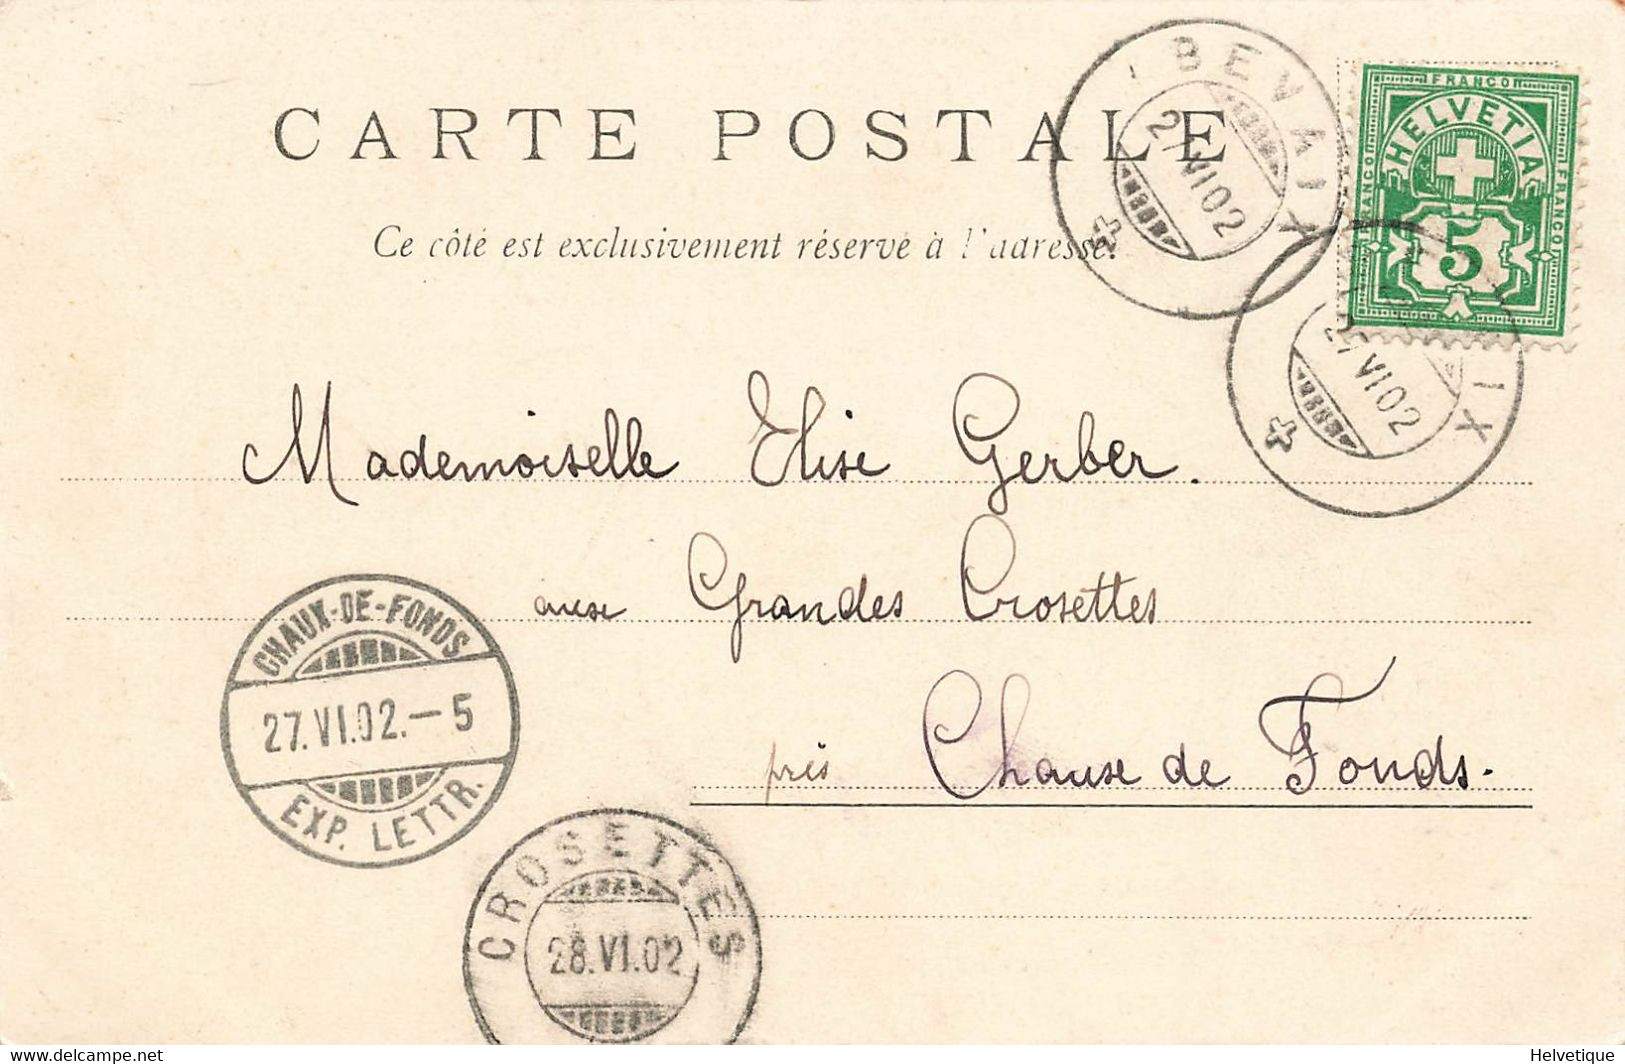 CARTE POSTALE
Ce côté est exclusivement réservé à l'adresse.
BEVAIX
27 VI 02
FRANCO
FRANCO
FRANCO
HELVETIA
5
IX
27 VI 02
Mademoiselle Elise Gerber.
aux Grandes Crosettes
près Chaux de Fonds.
CHAUX-DE-FONDS
27.VI.02.-5
EXP. LETTR.
CROSETTES
28.VI.02
www.delcampe.net
Helvetique